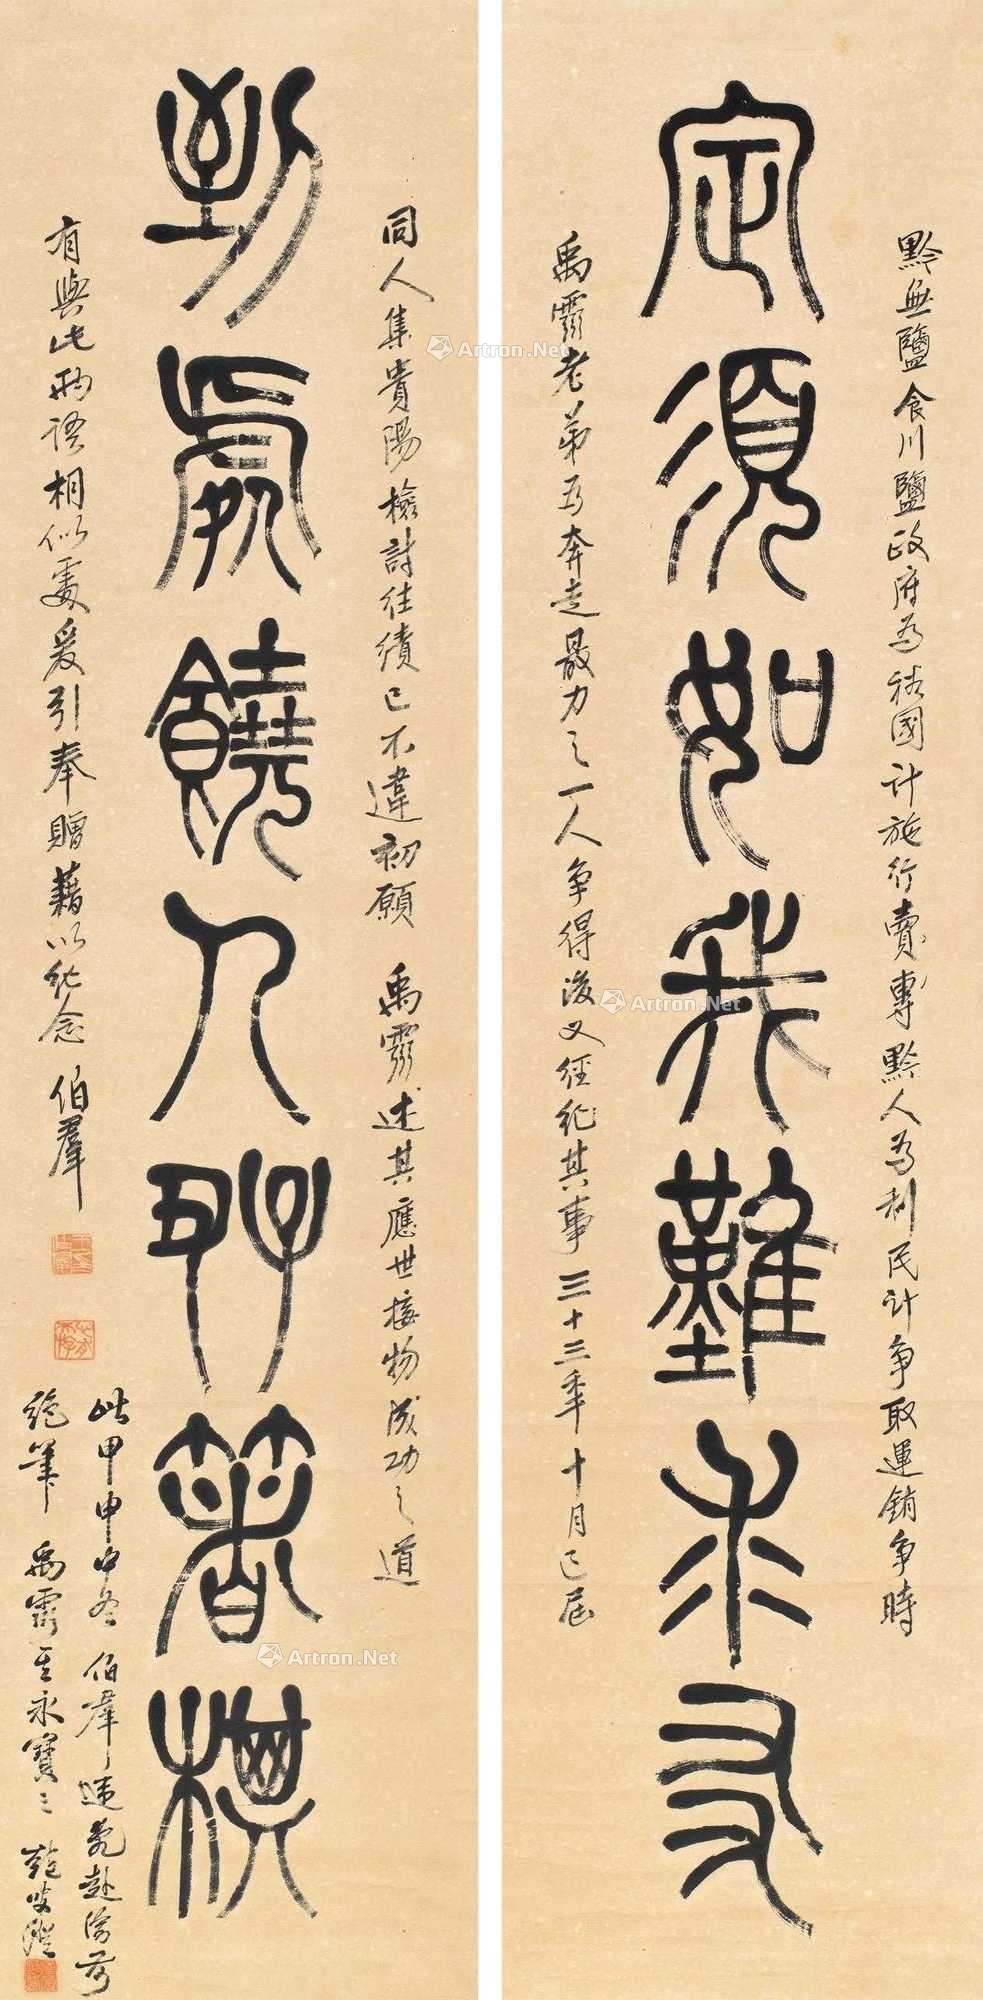 黔無鹽食川鹽政府為裕國計施行賣專黔人為利民計爭取運銷爭時
定須如我難求友
禹霨老弟為奔走最力之一人爭得後又經紀其事三十三年十月已屆
同人集貴陽檢討往績已不違初願禹霨述其應世接物成功之道
到處饒人好著棋
有與此兩語相似處爰引奉贈藉以紀念伯羣
此甲申中冬伯羣赴渝
絕筆禹霨其永寶之
Artron.Net
Artron.Net
Artron.Net